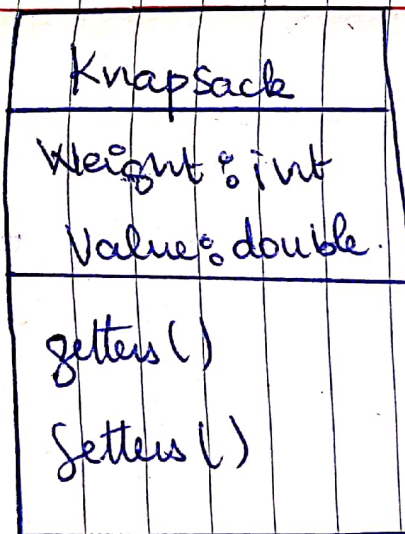 Knapsack
Weight : int
Value : double.
getters()
Setters()